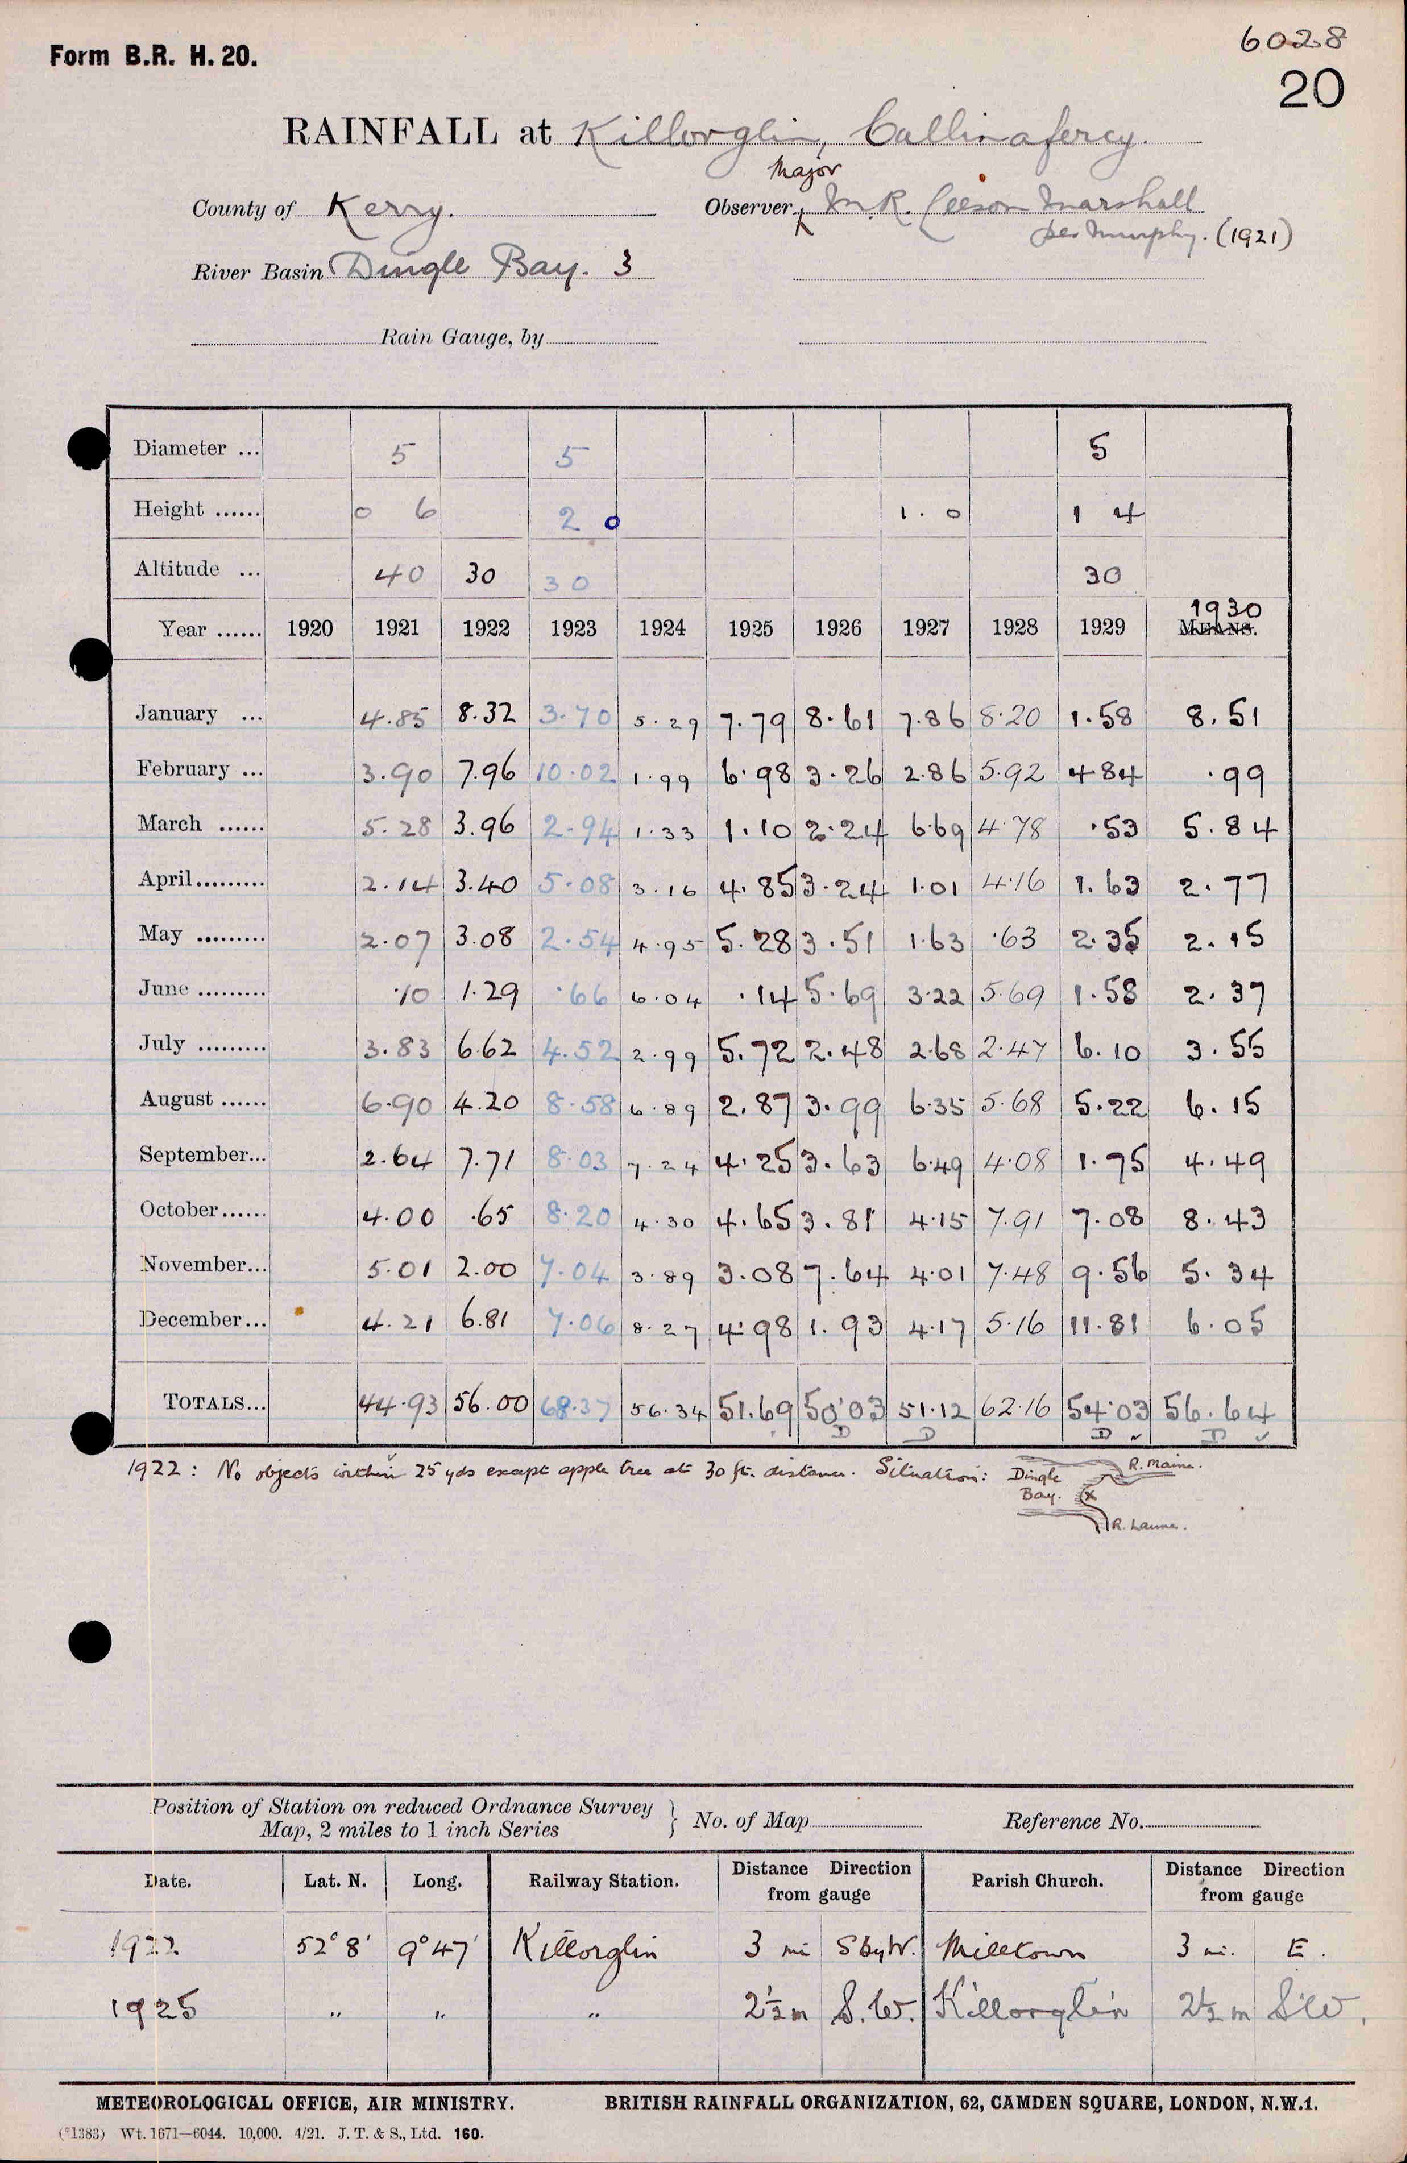 Form B.R. H. 20.
6028
20
RAINFALL at Killorglin, Callinafercy.
Major
County of Kerry. Observer M. R. Leeson Marshall
per Murphy. (1921)
River Basin Dingle Bay. 3
Rain Gauge, by
Diameter ... 5 5 5
Height ...... 0 6 2 0 1 . 0 1 4
Altitude ... 40 30 30 30
1930
Year ...... 1920 1921 1922 1923 1924 1925 1926 1927 1928 1929 MEANS.
January ... 4.85 8.32 3.70 5.29 7.79 8.61 7.86 8.20 1.58 8.51
February ... 3.90 7.96 10.02 1.99 6.98 3.26 2.86 5.92 4.84 .99
March ...... 5.28 3.96 2.94 1.33 1.10 2.24 6.69 4.78 .53 5.84
April......... 2.14 3.40 5.08 3.16 4.85 3.24 1.01 4.16 1.63 2.77
May ......... 2.07 3.08 2.54 4.95 5.28 3.51 1.63 .63 2.35 2.15
June ......... .10 1.29 .66 6.04 .14 5.69 3.22 5.69 1.58 2.37
July ......... 3.83 6.62 4.52 2.99 5.72 2.48 2.68 2.47 6.10 3.55
August ...... 6.90 4.20 8.58 6.89 2.87 3.99 6.35 5.68 5.22 6.15
September... 2.64 7.71 8.03 7.24 4.25 3.63 6.49 4.08 1.75 4.49
October...... 4.00 .65 8.20 4.30 4.65 3.81 4.15 7.91 7.08 8.43
November... 5.01 2.00 7.04 3.89 3.08 7.64 4.01 7.48 9.56 5.34
December... 4.21 6.81 7.06 8.27 4.98 1.93 4.17 5.16 11.81 6.05
TOTALS... 44.93 56.00 68.37 56.34 51.69 50.03 51.12 62.16 54.03 56.64
D D D ✓ D ✓
1922 : No objects within 25 yds except apple tree at 30 ft. distance. Situation: Dingle R. Maine.
Bay. x
R. Laune.
Position of Station on reduced Ordnance Survey
Map, 2 miles to 1 inch Series } No. of Map Reference No.
Date. Lat. N. Long. Railway Station. Distance Direction from gauge Parish Church. Distance Direction from gauge
1922 52° 8' 9° 47' Killorglin 3 mi S by W. Milltown 3 mi. E.
1925 " " " 2½ m S.W. Killorglin 2½ m S'W.
METEOROLOGICAL OFFICE, AIR MINISTRY. BRITISH RAINFALL ORGANIZATION, 62, CAMDEN SQUARE, LONDON, N.W.1.
(*1383) Wt. 1671—6044. 10,000. 4/21. J. T. & S., Ltd. 160.